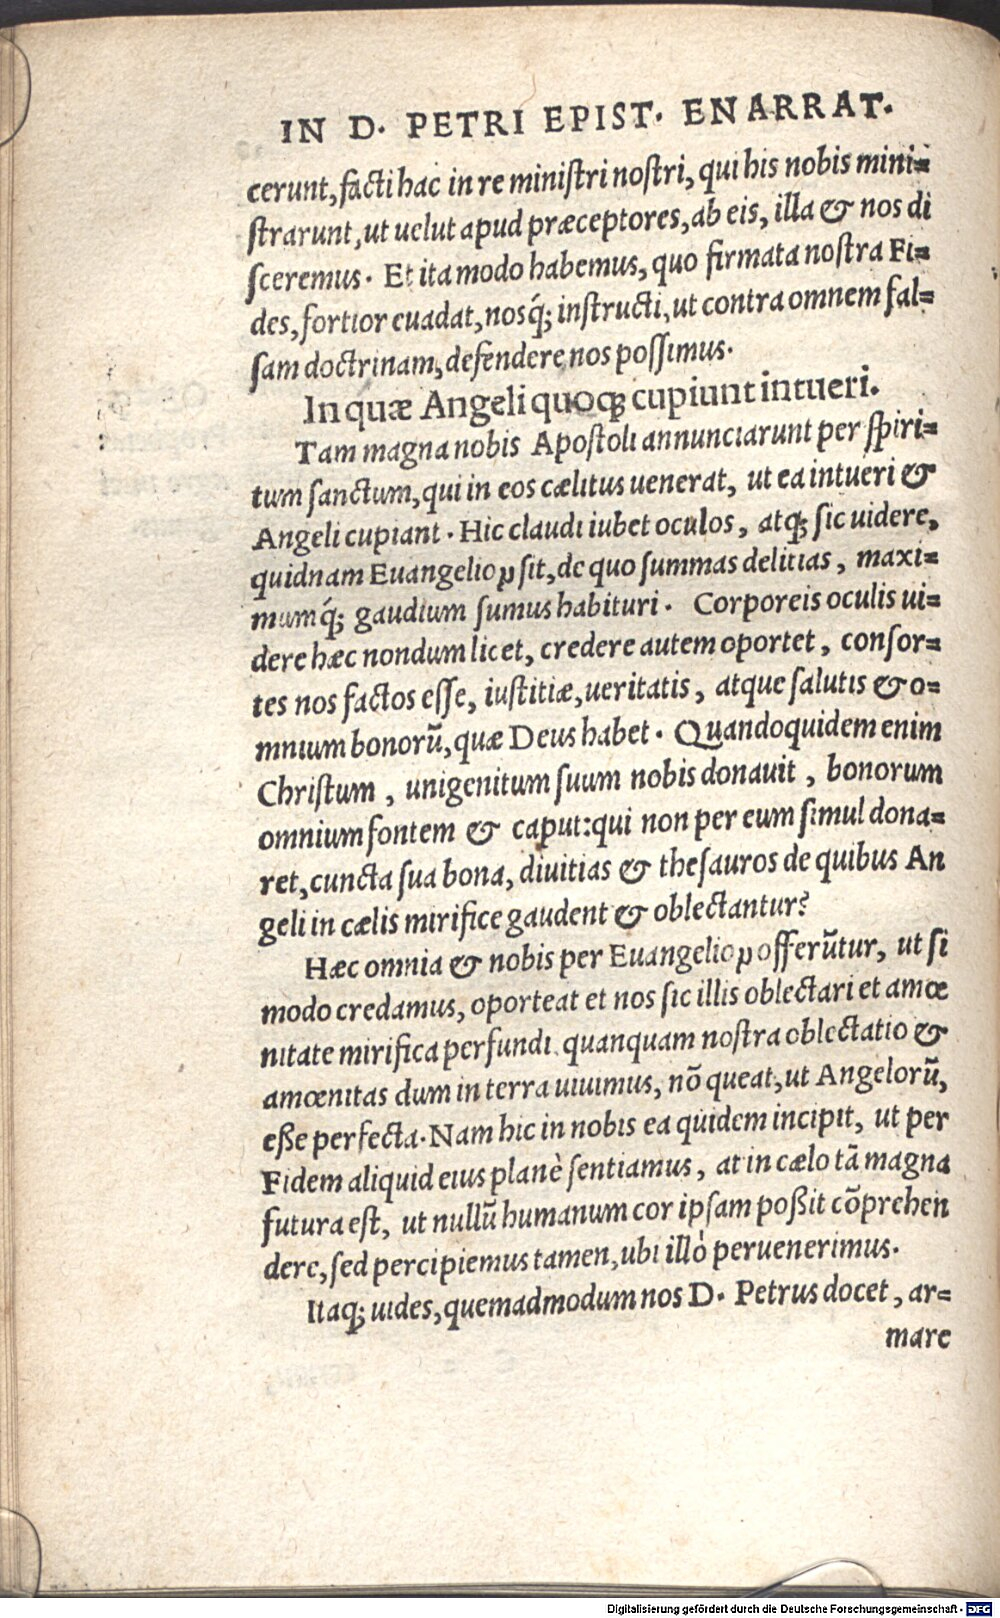 IN D. PETRI EPIST. ENARRAT.
cerunt, facti hac in re ministri nostri, qui his nobis mini=
strarunt, ut uelut apud præceptores, ab eis, illa & nos di
sceremus. Et ita modo habemus, quo firmata nostra Fi=
des, fortior euadat, nosq́; instructi, ut contra omnem fal=
sam doctrinam, defendere nos possimus.
In quæ Angeli quoq; cupiunt intueri.
Tam magna nobis Apostoli annunciarunt per spiri=
tum sanctum, qui in eos cælitus uenerat, ut ea intueri &
Angeli cupiant. Hic claudi iubet oculos, atq; sic uidere,
quidnam Euangelio ꝓ sit, de quo summas delitias, maxi=
mumq́; gaudium sumus habituri. Corporeis oculis ui=
dere hæc nondum licet, credere autem oportet, consor=
tes nos factos esse, iustitiæ, ueritatis, atque salutis & o=
mnium bonorũ, quæ Deus habet. Quandoquidem enim
Christum, unigenitum suum nobis donauit, bonorum
omnium fontem & caput: qui non per eum simul dona=
ret, cuncta sua bona, diuitias & thesauros de quibus An
geli in cælis mirifice gaudent & oblectantur?
Hæc omnia & nobis per Euangelio ꝓ offerũtur, ut si
modo credamus, oporteat et nos sic illis oblectari et amœ
nitate mirifica perfundi. quanquam nostra oblectatio &
amœnitas dum in terra uiuimus, nõ queat, ut Angelorũ,
eße perfecta. Nam hic in nobis ea quidem incipit, ut per
Fidem aliquid eius planè sentiamus, at in cælo tã magna
futura est, ut nullũ humanum cor ipsam poßit cõprehen
dere, sed percipiemus tamen, ubi illò peruenerimus.
Itaq; uides, quemadmodum nos D. Petrus docet, ar=
mare
Digitalisierung gefördert durch die Deutsche Forschungsgemeinschaft - DFG